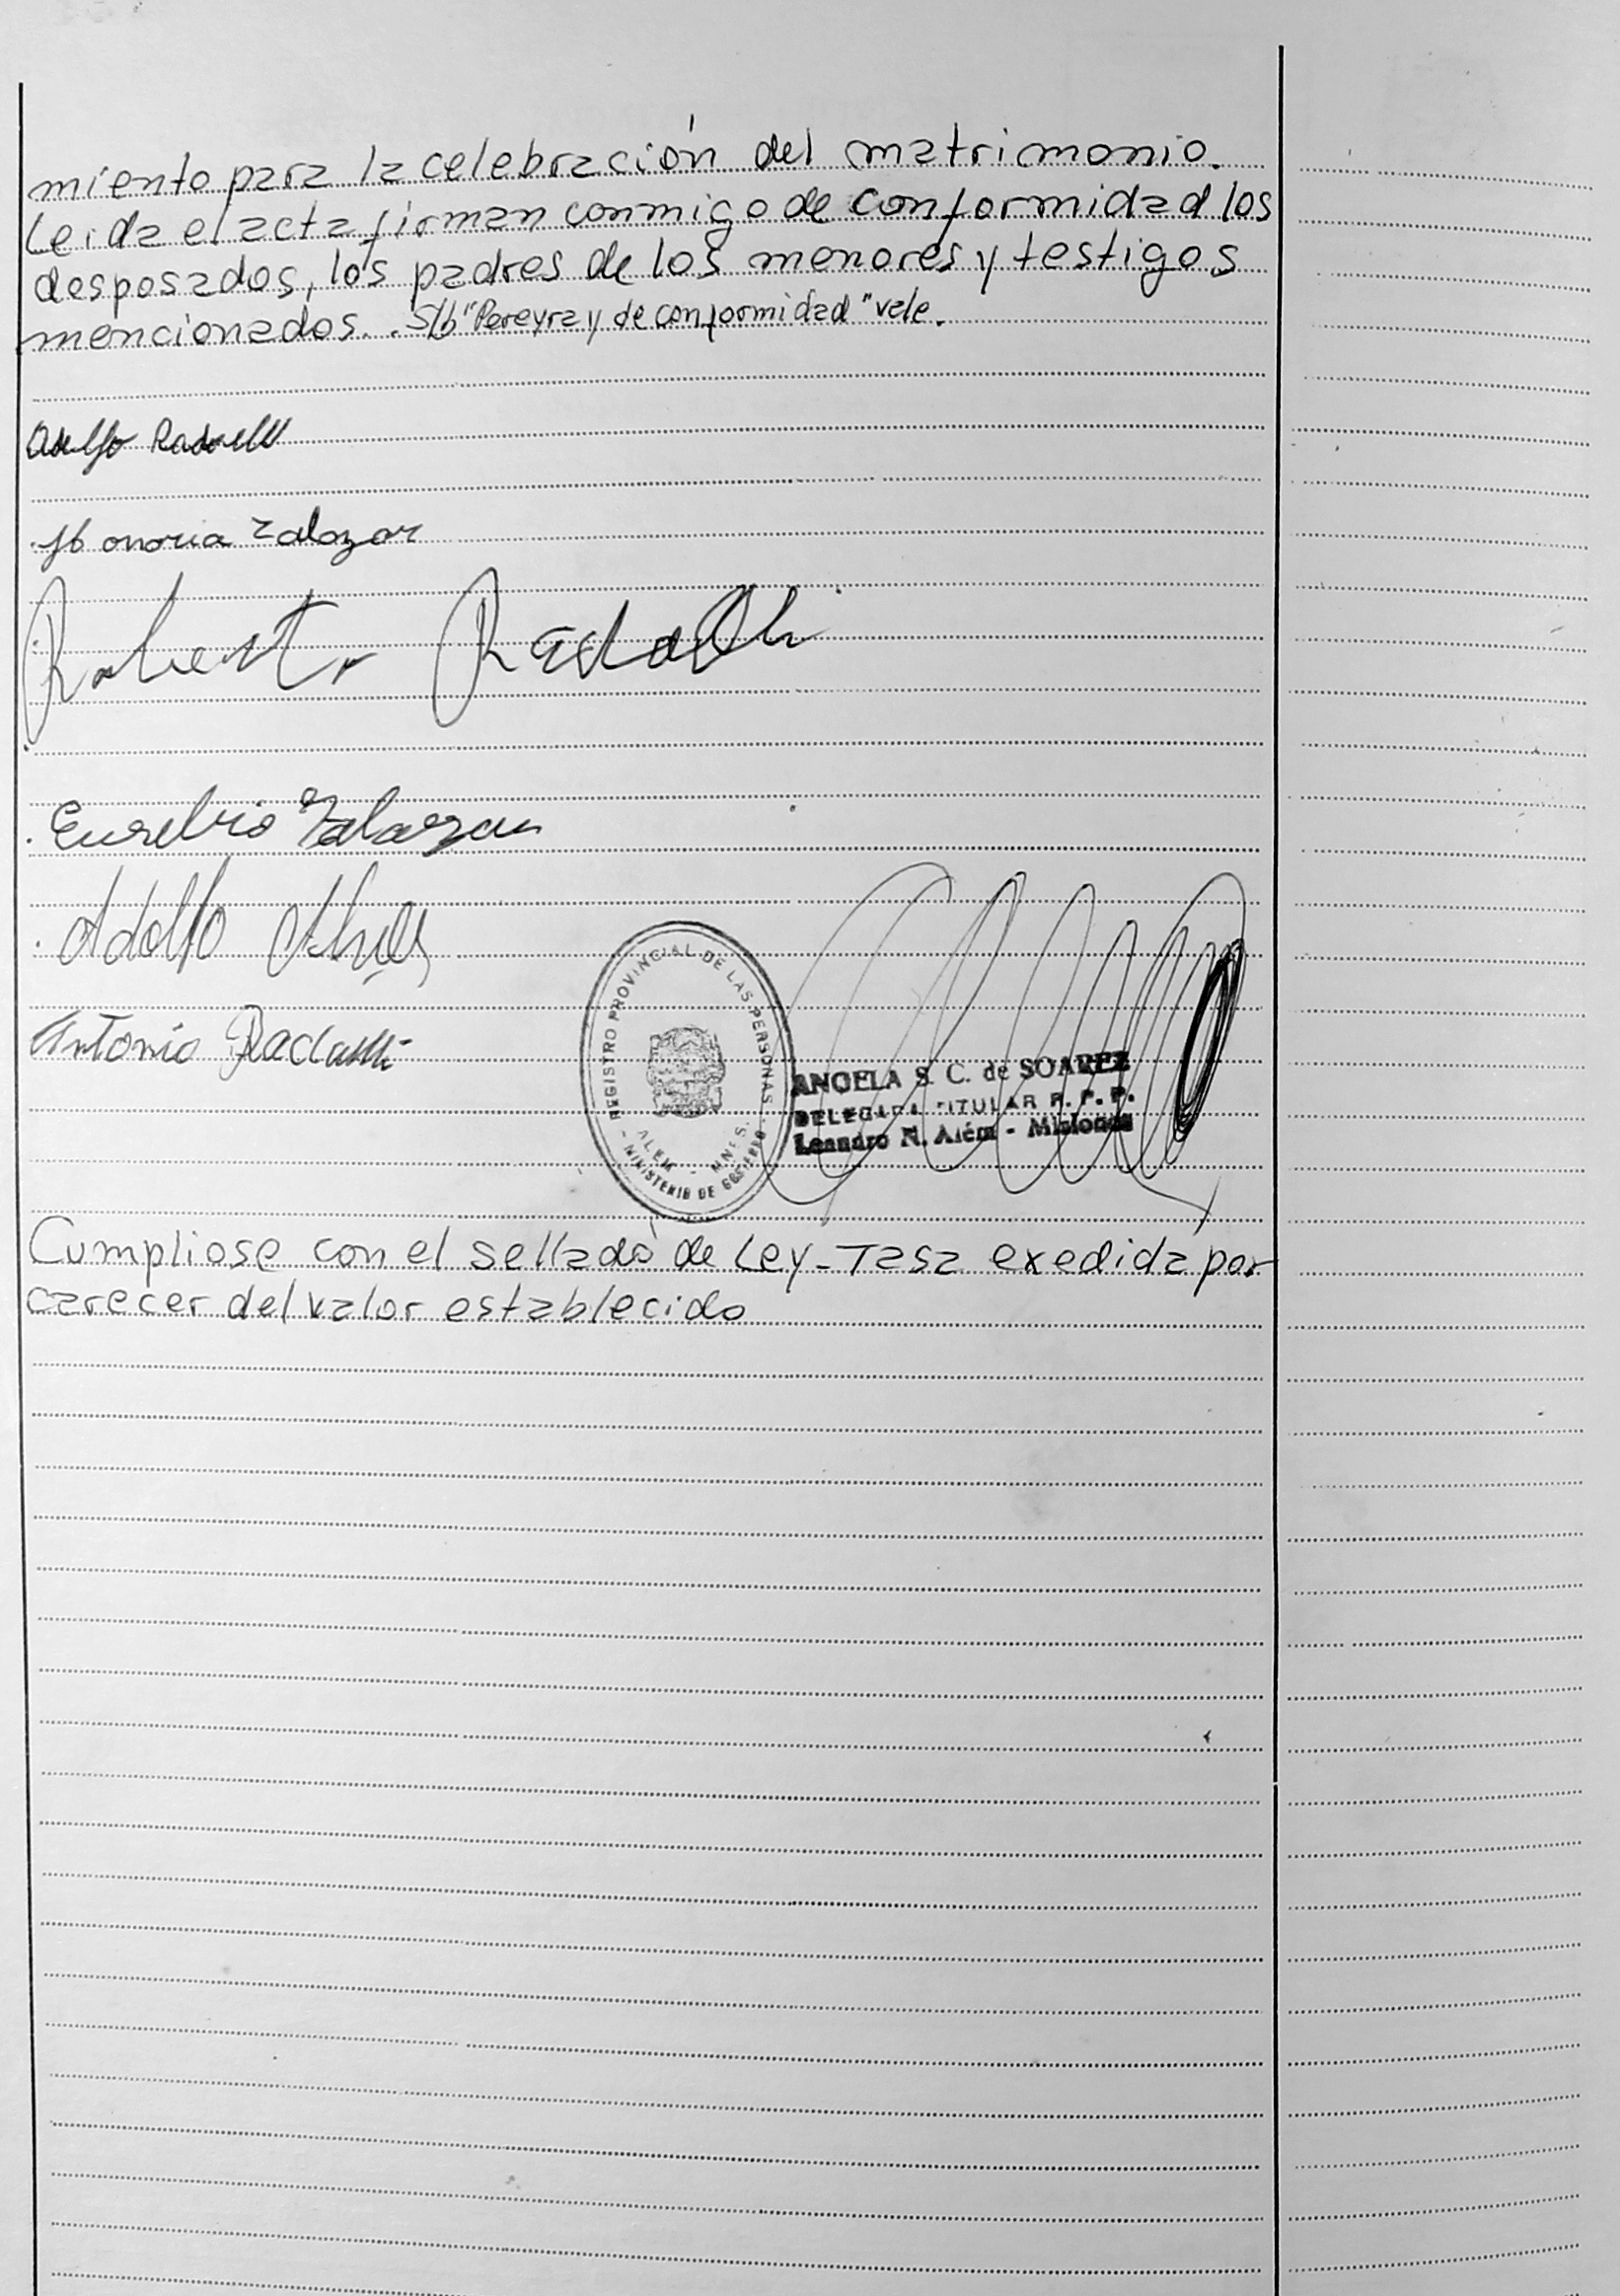 miento para la celebración del matrimonio.
Leida el acta firman conmigo de conformidad los
desposados, los padres de los menores y testigos
mencionados. S/b "Pereyra y de conformidad" vale.
Honoria Zalazar
Roberto
Eusebio Zalazar
Adolfo
Antonio
REGISTRO PROVINCIAL DE LAS PERSONAS
ALEM - MNES.
- MINISTERIO DE GOBIERNO -
ANGELA S. C. de SOAREZ
DELEGADA TITULAR R. P. P.
Leandro N. Além - Misiones
Cumpliose con el sellado de Ley - Tasa exedida por
carecer del valor establecido